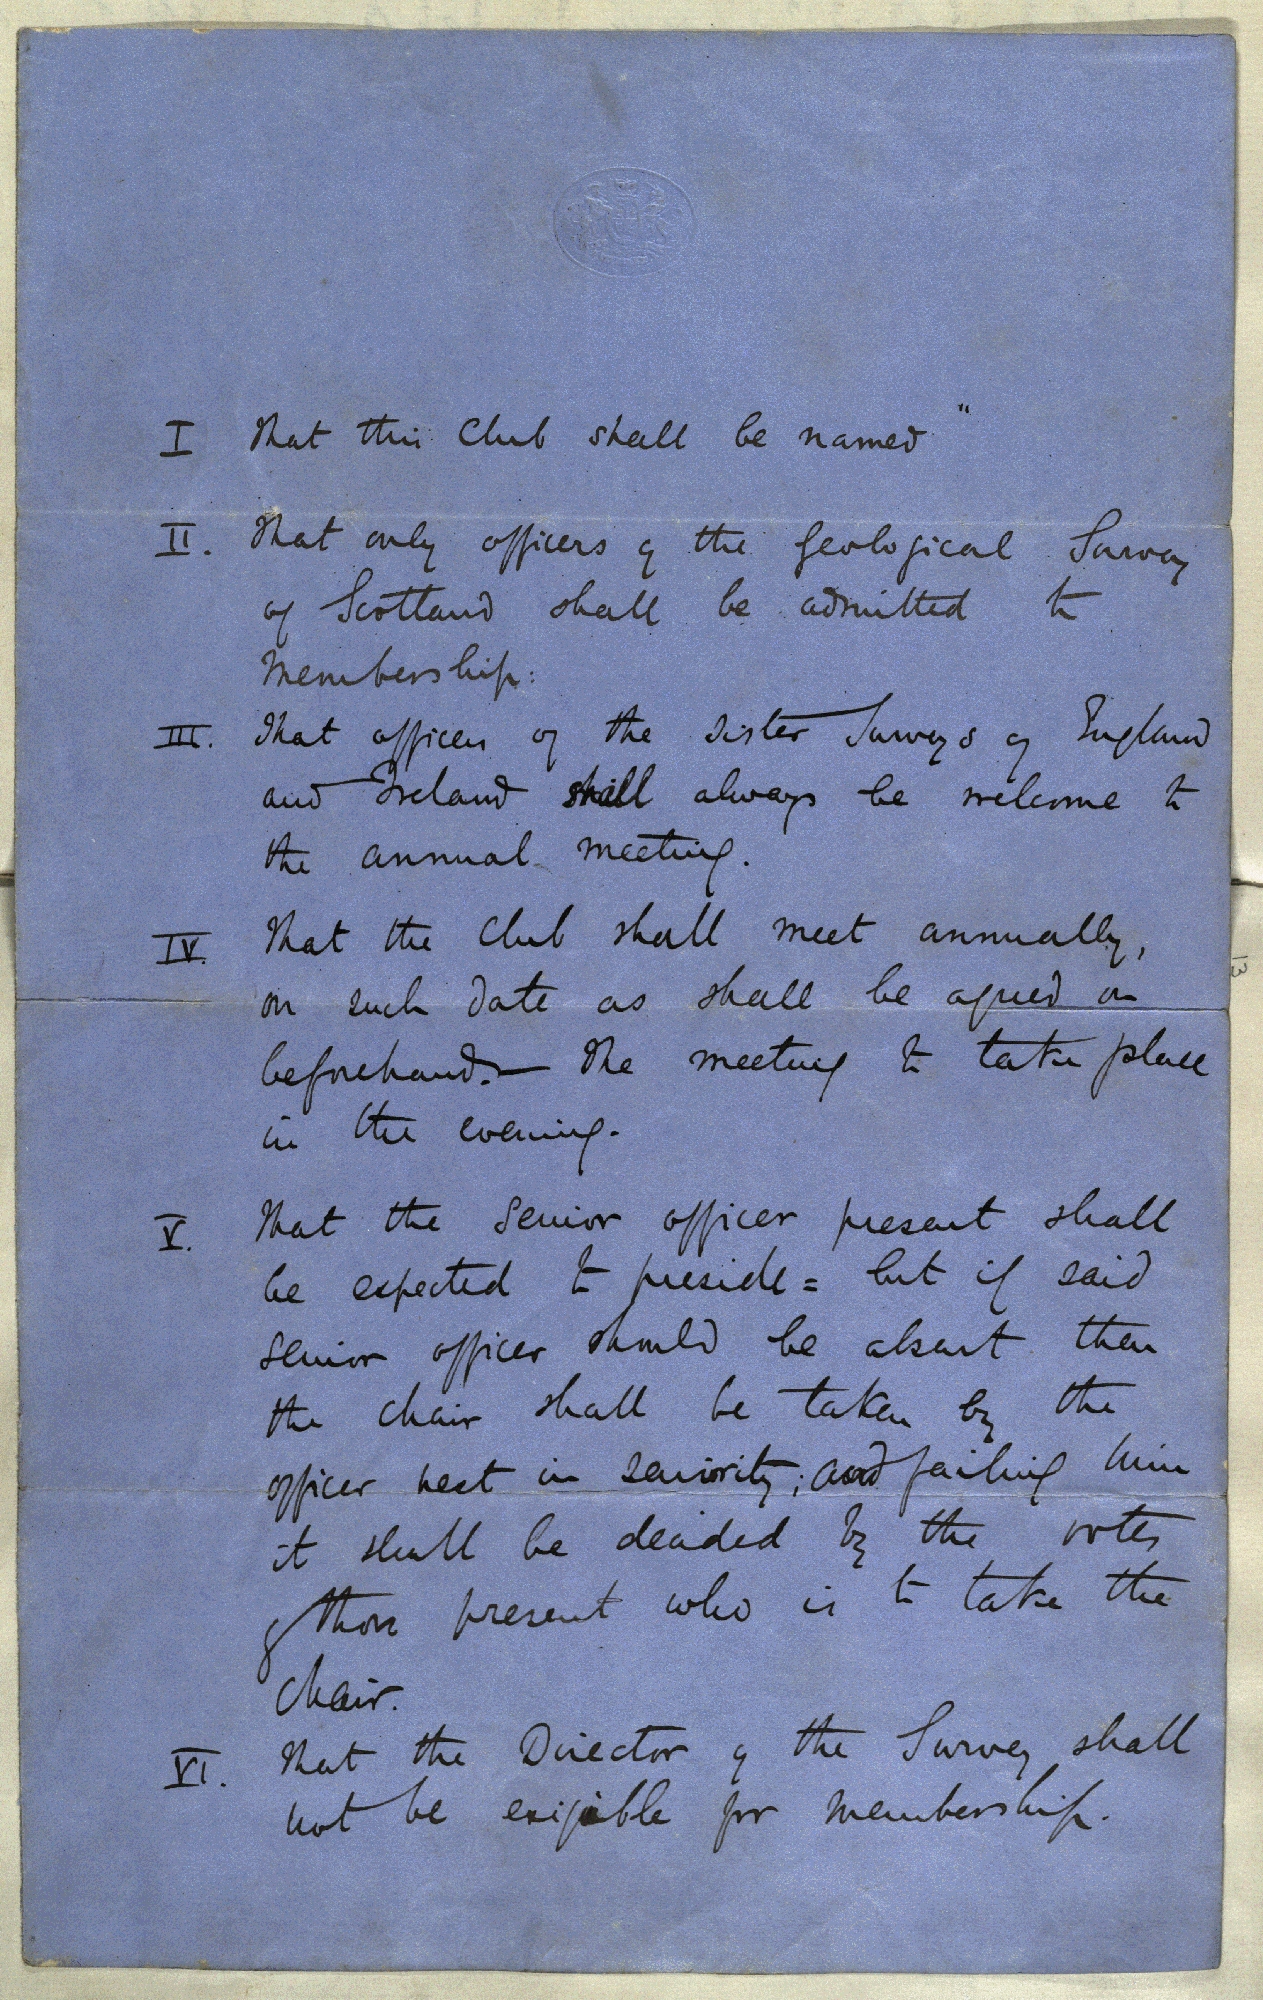 I That this Club shall be named "
II. That only officers of the Geological Survey
of Scotland shall be admitted to
Membership:
III. That officers of the Sister Surveys of England
and Ireland shall always be welcome to
the annual meeting.
IV. That the Club shall meet annually,
on such date as shall be agreed on
beforehand. — The meeting to take place
in the evening.
V. That the Senior officer present shall
be expected to preside = but if said
senior officer should be absent then
the chair shall be taken by the
officer next in seniority; and failing him
it shall be decided by the votes
of those present who is to take the
chair.
VI. That the Director of the Survey shall
not be eligible for membership.